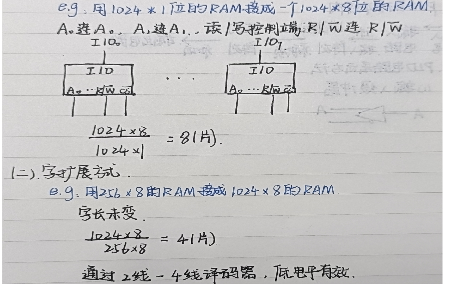 e.g. 用1024*1位的RAM接成一个1024*8位的RAM.
A₀连A₀、A₁连A₁、读/写控制端R/W̅连R/W̅
I/O₀ I/O₇
I/O ... I/O
A₀...R/W̅ C̅S̅ A₀...R/W̅ C̅S̅
1024×8
1024×1 = 8(片).
(二).字扩展方式.
e.g. 用256×8的RAM接成1024×8的RAM
字长未变.
1024×8
256×8 = 4(片)
通过2线-4线译码器,低电平有效.